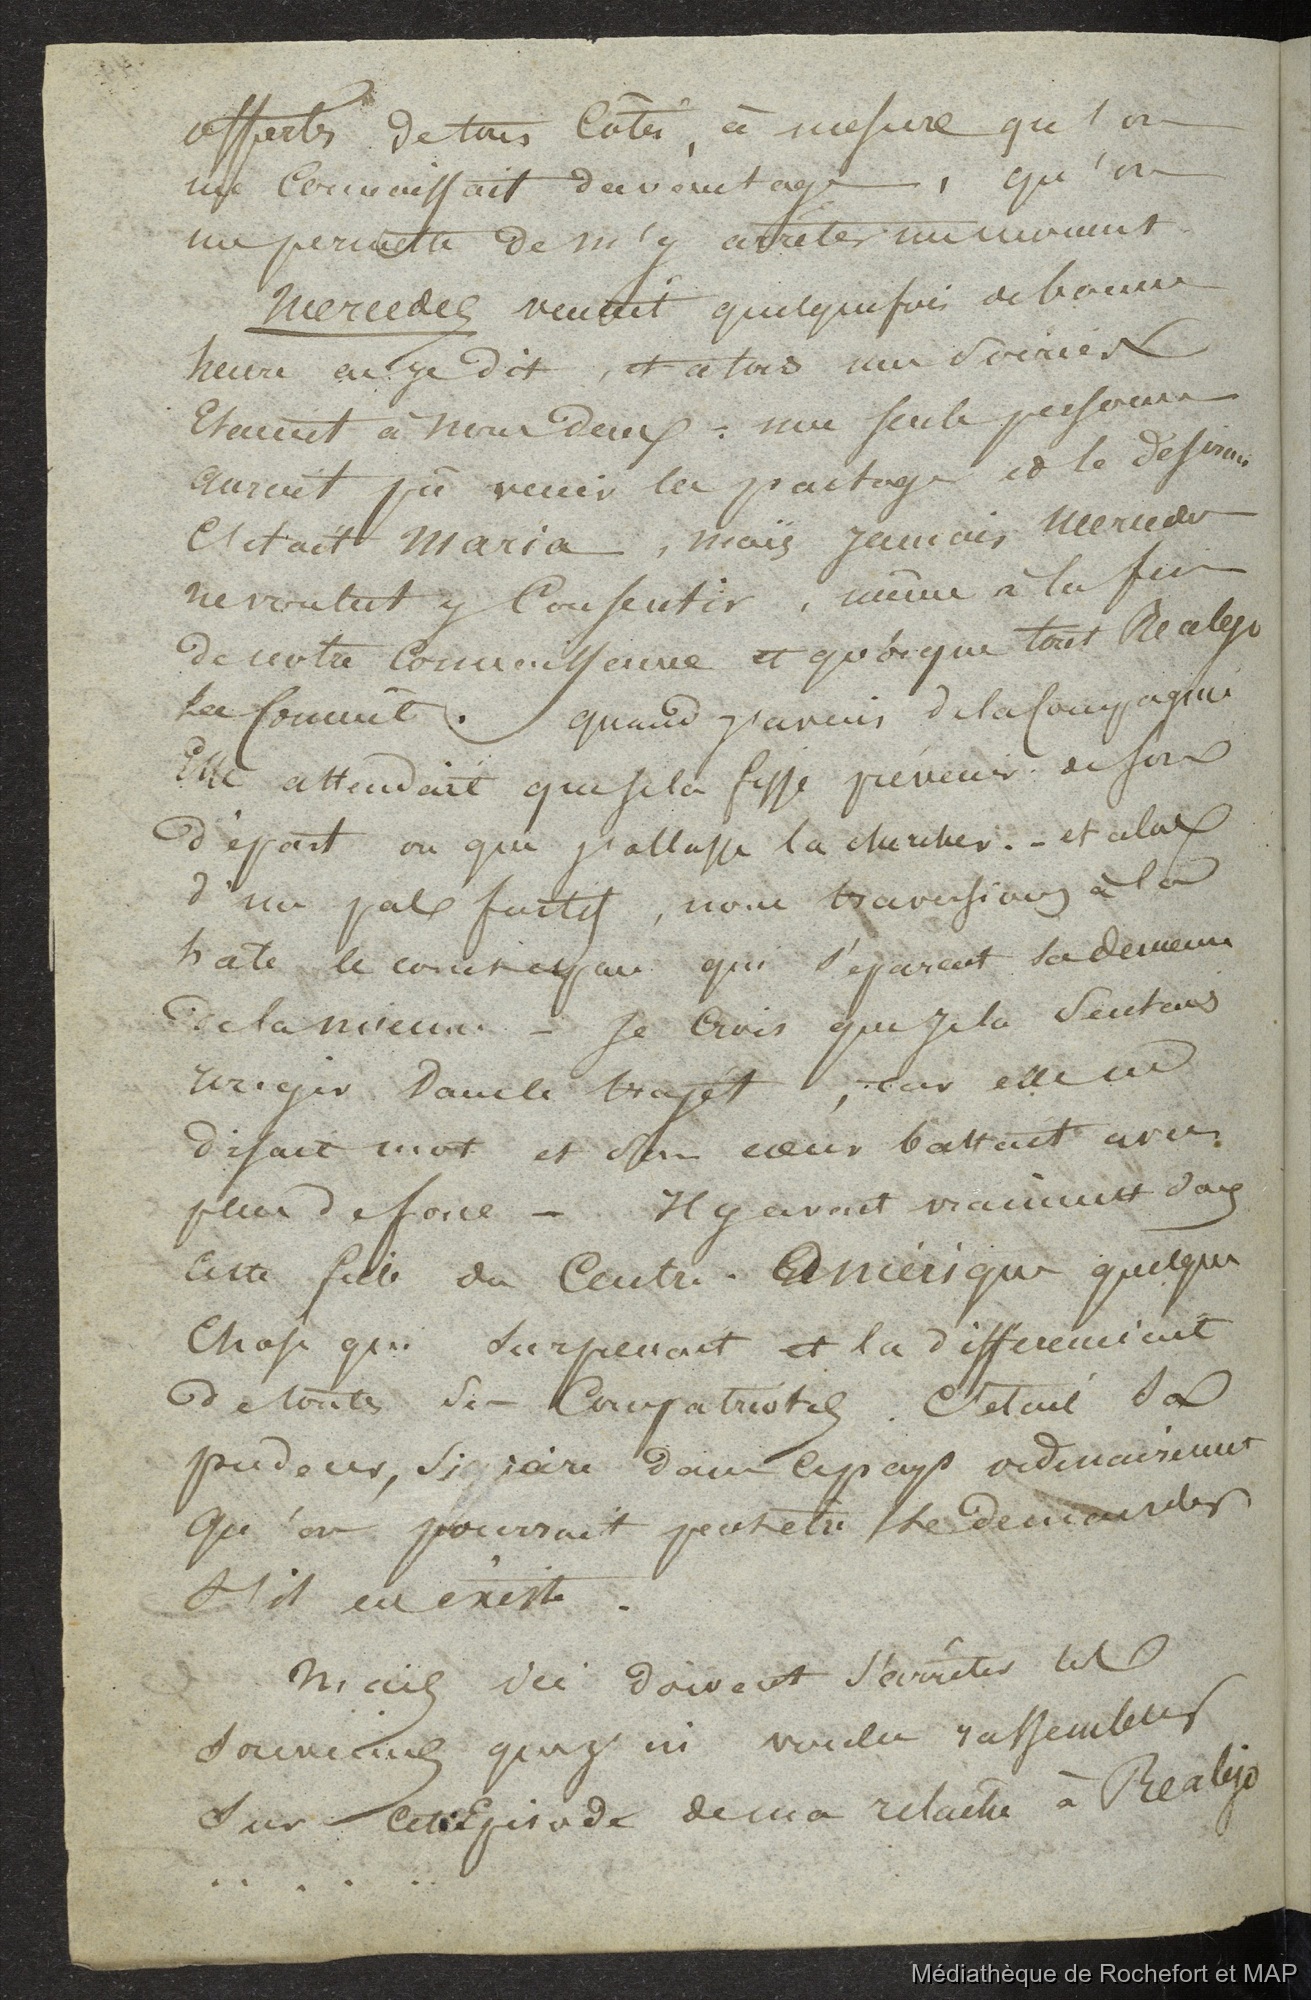 offerts de tous côtés, à mesure qu'on
me connaissait davantage, qu'on
me permette de m'y arrêter un moment.
Mercedes venait quelquefois de bonne
heure ai-je dit, et alors nos soirées
étaient à nous deux : une seule personne
aurait pû venir les partager et le désirait
c'était Maria, mais jamais Mercedes
ne voulut y consentir, même à la fin
de notre connaissance et quoique tout Realejo
la connut. quand j'avais de la compagnie
Elle attendait que je la fisse prévenir de son
départ ou que j'allasse la chercher. - et alors
d'un pas furtif, nous traversions à la
hâte le court espace qui séparait sa demeure
de la mienne - je crois que je la sentais
rougir dans le trajet, car elle ne
disait mot et son cœur battait avec
plus de force - Il y avait vraiment dans
cette fille du Centre-Amérique quelque
chose qui surprenait et la différenciait
de toutes ses compatriotes. C'était sa
pudeur, si rare dans ce pays ordinairement
qu'on pourrait peut etre se demander
s'il en existe.
Mais ici doivent s'arrêter les
souvenirs que j'ai voulu rassembler
sur cet Episode de ma relache à Realejo
. . . . . .
Médiathèque de Rochefort et MAP